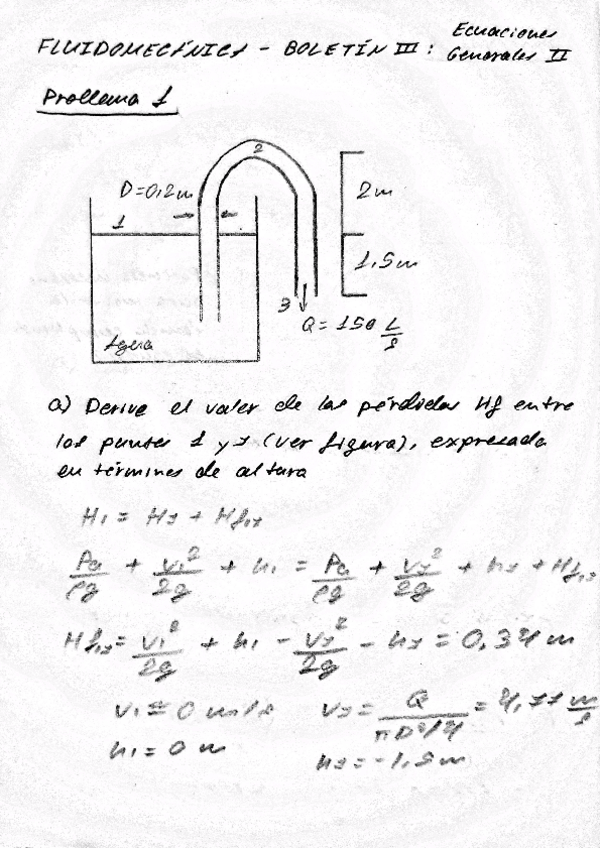 FLUIDOMECÁNICA - BOLETÍN III: Ecuaciones Generales II
Problema 1
D=0,2m
1
2
2m
1,5m
3
Q = 150 L/s
Agua
a) Derive el valor de las pérdidas Hf entre
los puntos 1 y 3 (ver figura), expresada
en términos de altura
H1 = H3 + Hf1,3
Pa/ρg + V1²/2g + h1 = Pa/ρg + V3²/2g + h3 + Hf1,3
Hf1,3 = V1²/2g + h1 - V3²/2g - h3 = 0,34 m
V1 ≅ 0 m/s V3 = Q/(πD²/4) = 4,77 m/s
h1 = 0 m h3 = -1,5 m